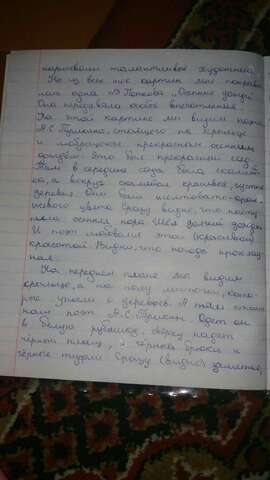 нарисовали талантливые художники.
Но из всех тех картин мне понрави-
лась одна В Попкова „Осенние дожди"
Она передавала особое впечатление.
На этой картине мы видим
А.С.Пушкина, стоящего на крыльце
и любующегося прекрасным осенним
дождём. Это был прекрасный сад.
Там в середине сада была скамей-
ка, а вокруг стояли красивые, густые
деревья. Они были желтовато-оран-
жевого цвета Сразу видно, что насту-
пила осенняя пора Шёл долгий дождь
И поэт любовался этой (красивой)
красотой. Видно, что погода прохлад-
ная.
На переднем плане мы видим
крыльцо, а на полу листочки, кото-
рые упали с деревьев. А там стоит
поэт А.С.Пушкин Одет он
в белую рубашку, сверху надет
чёрный плащ, чёрные брюки и
чёрные туфли Сразу (видно) заметно,